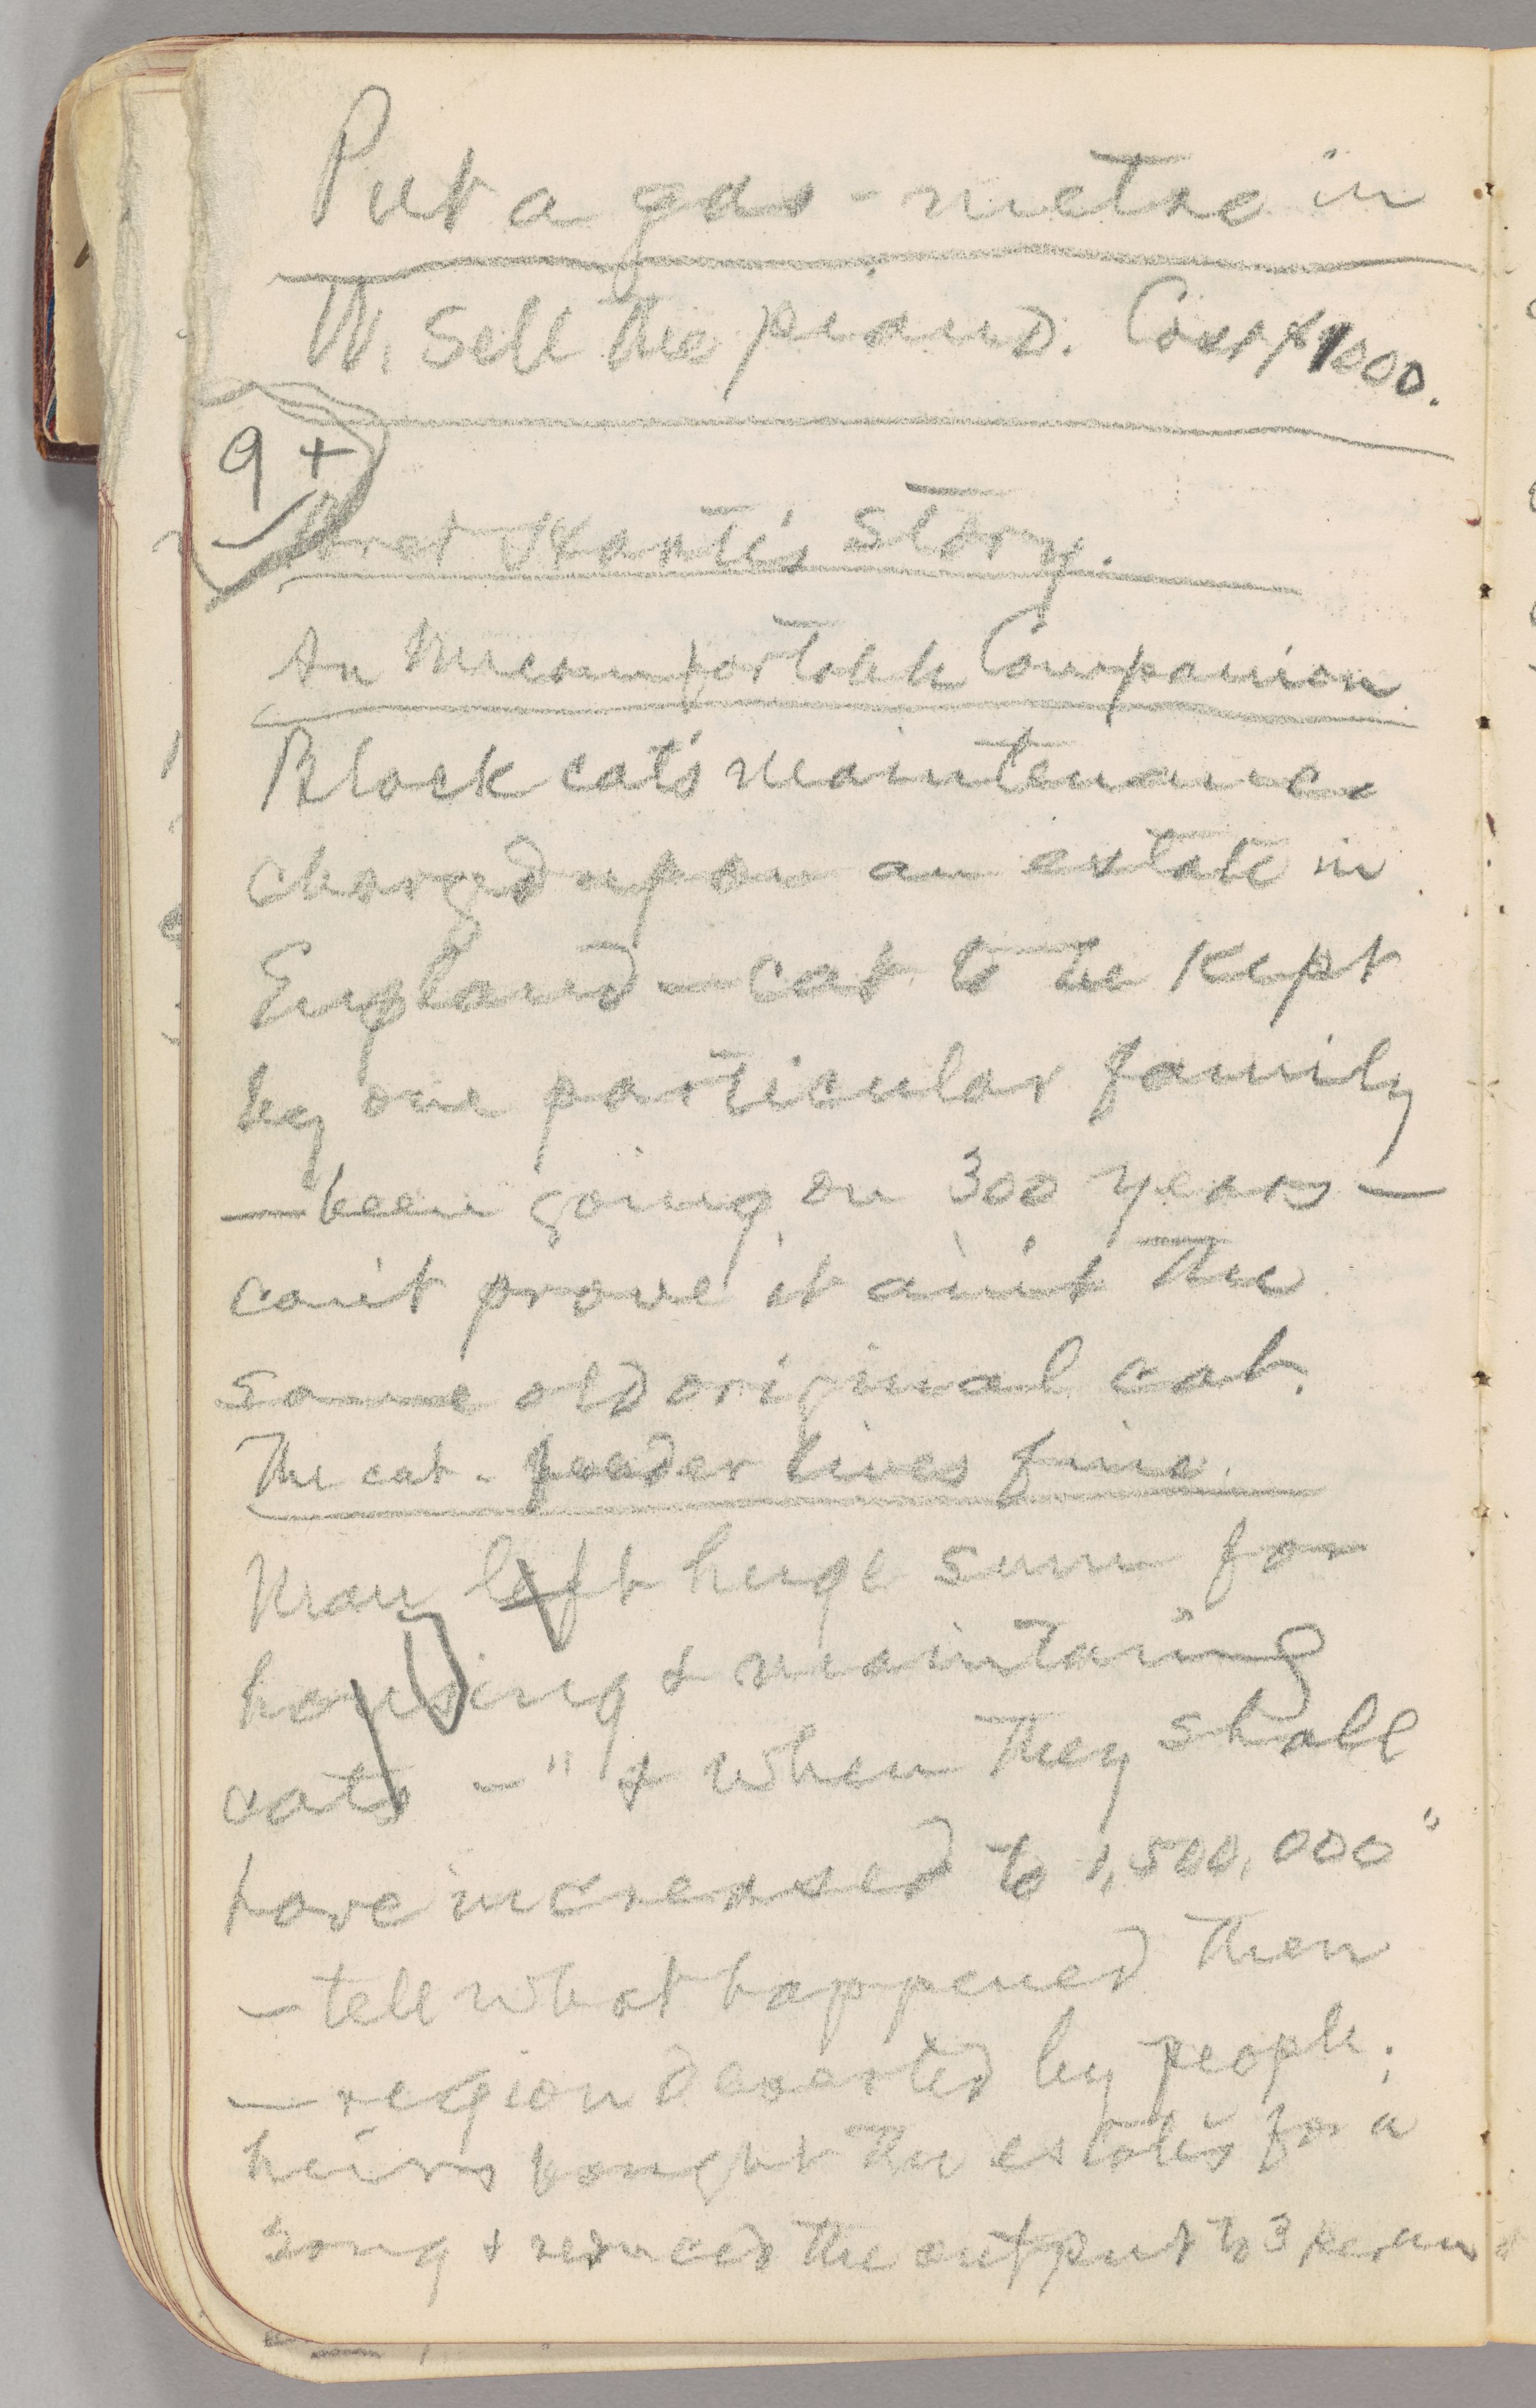 Put a gas-metre in
W. Sell the piano. Cost $1000.
9 +
Bret Harte's Story.
An Uncomfortable Companion
Black cat's maintenance
charged upon an estate in
England — cat to be kept
by one particular family
— been going on 300 years —
can't prove it ain't the
same old original cat.
The cat-feeder lives fine.
Man left huge sum for
housing & maintaing
cats — "& when they shall
have increased to 1,500,000"
— tell what happened then
— region deserted by people;
heirs bought the estates for a
song & reduced the output to 3 per